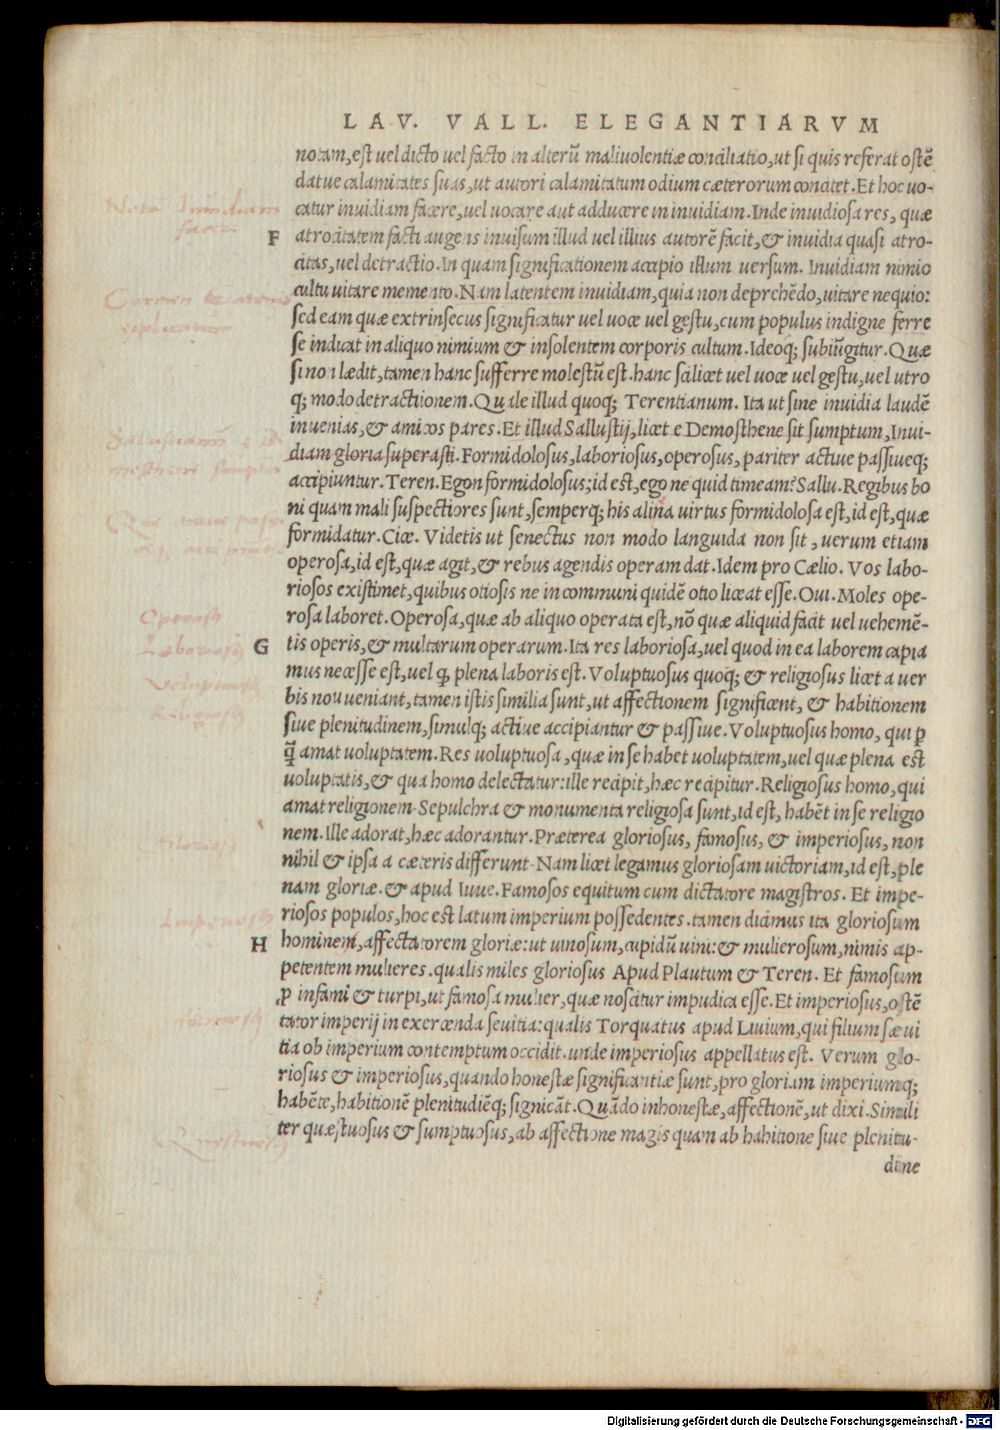 LAV. VALL. ELEGANTIARVM
notam, est uel dicto uel facto in alterũ maliuolentiæ conciliatio, ut si quis referat ostẽ
dat ue calamitates suas, ut autori calamitatum odium cæterorum concitet. Et hoc uo-
catur inuidiam facere, uel uocare aut adducere in inuidiam. Inde inuidiosa res, quæ
F atrocitatem facti augens inuisum illud uel illius autorẽ facit, & inuidia quasi atro-
citas, uel detractio. In quam significationem accipio illum uersum. Inuidiam nimio
cultu uitare memento. Nam latentem inuidiam, quia non deprehẽdo, uitare nequio:
sed eam quæ extrinsecus significatur uel uoce uel gestu, cum populus indigne ferre
se indicat in aliquo nimium & insolentem corporis cultum. Ideoq; subiũgitur. Quæ
si non lædit, tamen hanc sufferre molestũ est. hanc scilicet uel uoce uel gestu, uel utro
q; modo detractiionem. Quale illud quoq; Terentianum. Ita ut sine inuidia laudẽ
inuenias, & amicos pares. Et illud Sallustij, licet e Demosthene sit sumptum, Inui-
diam gloria superasti. Formidolosus, laboriosus, operosus, pariter actiue passiueq;
accipiuntur. Teren. Egon formidolosus; id est, ego ne quid timeam? Sallu. Regibus bo
ni quam mali suspectiores sunt, semperq; his aliena uirtus formidolosa est, id est, quæ
formidatur. Cice. Videtis ut senectus non modo languida non sit, uerum etiam
operosa, id est, quæ agit, & rebus agendis operam dat. Idem pro Cælio. Vos labo-
riosos existimet, quibus otiosis ne in communi quidẽ otio liceat esse. Oui. Moles ope-
rosa laboret. Operosa, quæ ab aliquo operata est, nõ quæ aliquid facit uel uehemẽ-
G tis operis, & multarum operarum. Ita res laboriosa, uel quod in ea laborem capia
mus necesse est, uel ꝙ plena laboris est. Voluptuosus quoq; & religiosus licet a uer
bis non ueniant, tamen istis similia sunt, ut affectionem significent, & habitionem
siue plenitudinem, simulq; actiue accipiantur & passiue. Voluptuosus homo, qui ꝑ
q̃ amat uoluptatem. Res uoluptuosa, quæ in se habet uoluptatem, uel quæ plena est
uoluptatis, & qua homo delectatur: ille recipit, hæc recipitur. Religiosus homo, qui
amat religionem. Sepulchra & monumenta religiosa sunt, id est, habẽt in se religio
nem. Ille adorat, hæc adorantur. Præterea gloriosus, famosus, & imperiosus, non
nihil & ipsa a cæteris differunt. Nam licet legamus gloriosam uictoriam, id est, ple
nam gloriæ. & apud Iuue. Famosos equitum cum dictatore magistros. Et impe-
riosos populos, hoc est latum imperium possedentes. tamen dicimus ita gloriosum
H hominem, affectatorem gloriæ: ut uinosum, cupidũ uini: & mulierosum, nimis ap-
petentem mulieres. qualis miles gloriosus Apud Plautum & Teren. Et famosum
ꝓ infami & turpi, ut famosa mulier, quæ noscitur impudica esse. Et imperiosus, ostẽ
tator imperij in exercenda seuitia: qualis Torquatus apud Liuium, qui filium sæui
tia ob imperium contemptum occidit. unde imperiosus appellatus est. Verum glo-
riosus & imperiosus, quando honestæ significantiæ sunt, pro gloriam imperiumq;
habẽte, habitionẽ plenitudiẽq; signicãt. Quãdo inhonestæ, affectionẽ, ut dixi. Simili
ter quæstuosus & sumptuosus, ab affectione magis quam ab habitione siue plenitu-
dine
Operosus
Laboriosus
Voluptuosus
Religiosus
Gloriosus
Imperiosus
Famosus
Digitalisierung gefördert durch die Deutsche Forschungsgemeinschaft - DFG